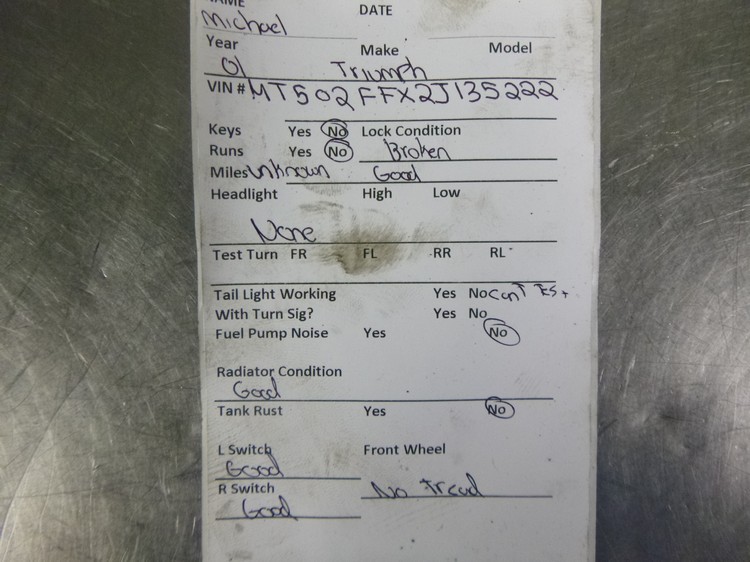 NAME DATE
Michael
Year Make Model
01 Triumph
VIN # MT502FFX2J135222
Keys Yes No Lock Condition
Runs Yes No Broken
Miles Unknown Good
Headlight High Low
None
Test Turn FR FL RR RL
Tail Light Working Yes No Cant Test
With Turn Sig? Yes No
Fuel Pump Noise Yes No
Radiator Condition
Good
Tank Rust Yes No
L Switch Front Wheel
Good
R Switch No Tread
Good